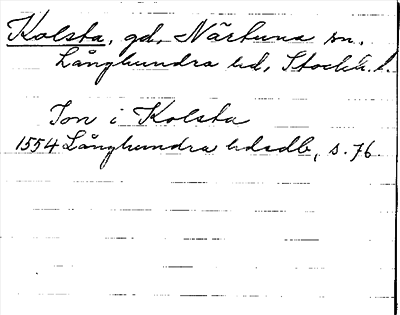 Kolsta, gd, Närtuna sn,
Långhundra hd, Stockh. l.
Jon i Kolsta
1554 Långhundra hdsdb, s. 76.